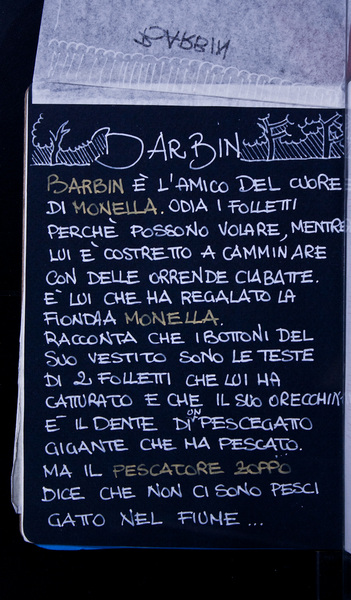 BARBIN
BARBIN
BARBIN È L'AMICO DEL CUORE
DI MONELLA. ODIA I FOLLETTI
PERCHÈ POSSONO VOLARE, MENTRE
LUI È COSTRETTO A CAMMINARE
CON DELLE ORRENDE CIABATTE.
E' LUI CHE HA REGALATO LA
FIONDA A MONELLA.
RACCONTA CHE I BOTTONI DEL
SUO VESTITO SONO LE TESTE
DI 2 FOLLETTI CHE LUI HA
CATTURATO E CHE IL SUO ORECCHIN
E' IL DENTE DI UN PESCEGATTO
GIGANTE CHE HA PESCATO.
MA IL PESCATORE ZOPPO
DICE CHE NON CI SONO PESCI
GATTO NEL FIUME ...